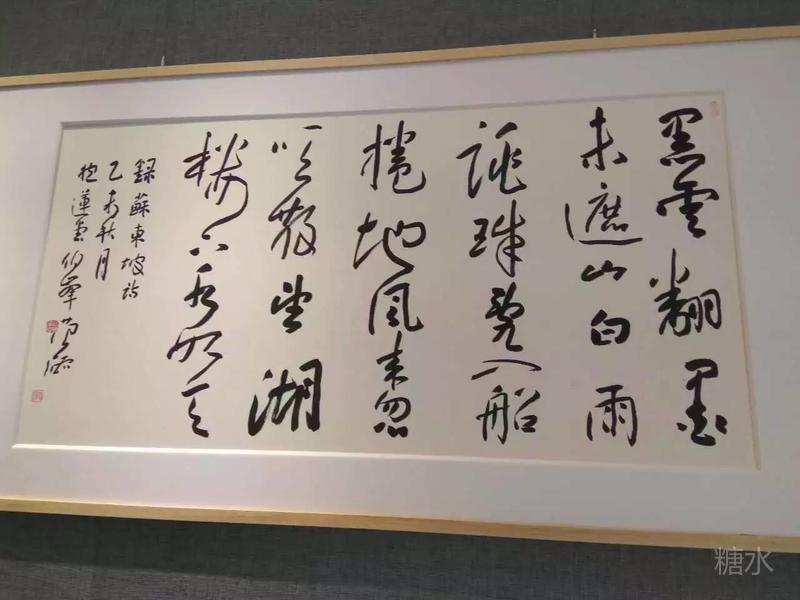 黑雲翻墨
未遮山白雨
跳珠亂入船
捲地風來忽
吹散望湖
樓下水如天
錄蘇東坡詩
乙未秋月
蓮
糖水